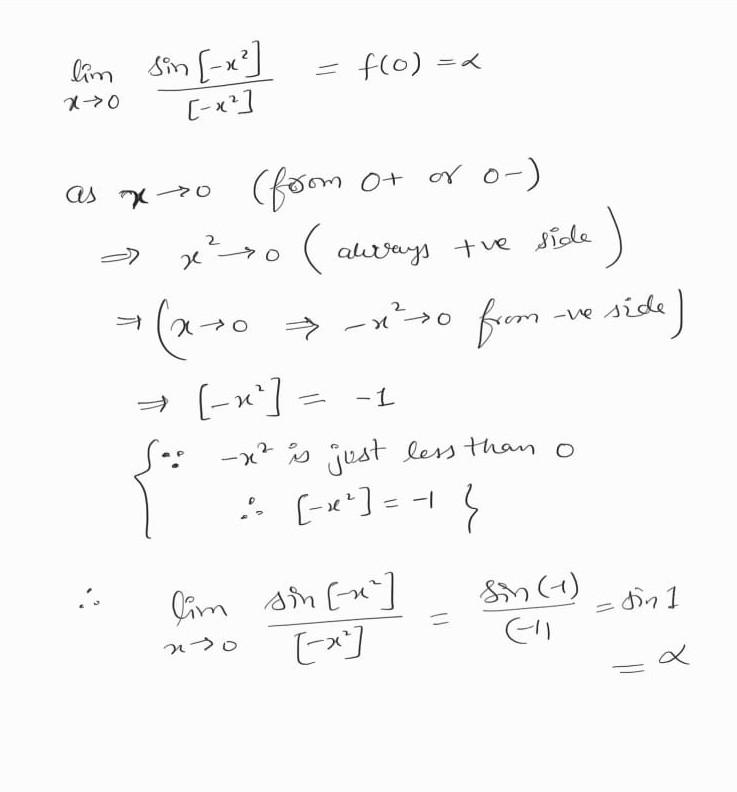 lim x→0 sin[-x²] / [-x²] = f(0) = α
as x→0 (from 0+ or 0-)
⇒ x²→0 (always +ve side)
⇒ (x→0 ⇒ -x²→0 from -ve side)
⇒ [-x²] = -1
{∵ -x² is just less than 0
∴ [-x²] = -1 }
∴ lim x→0 sin[-x²] / [-x²] = sin(-1) / (-1) = sin 1
= α